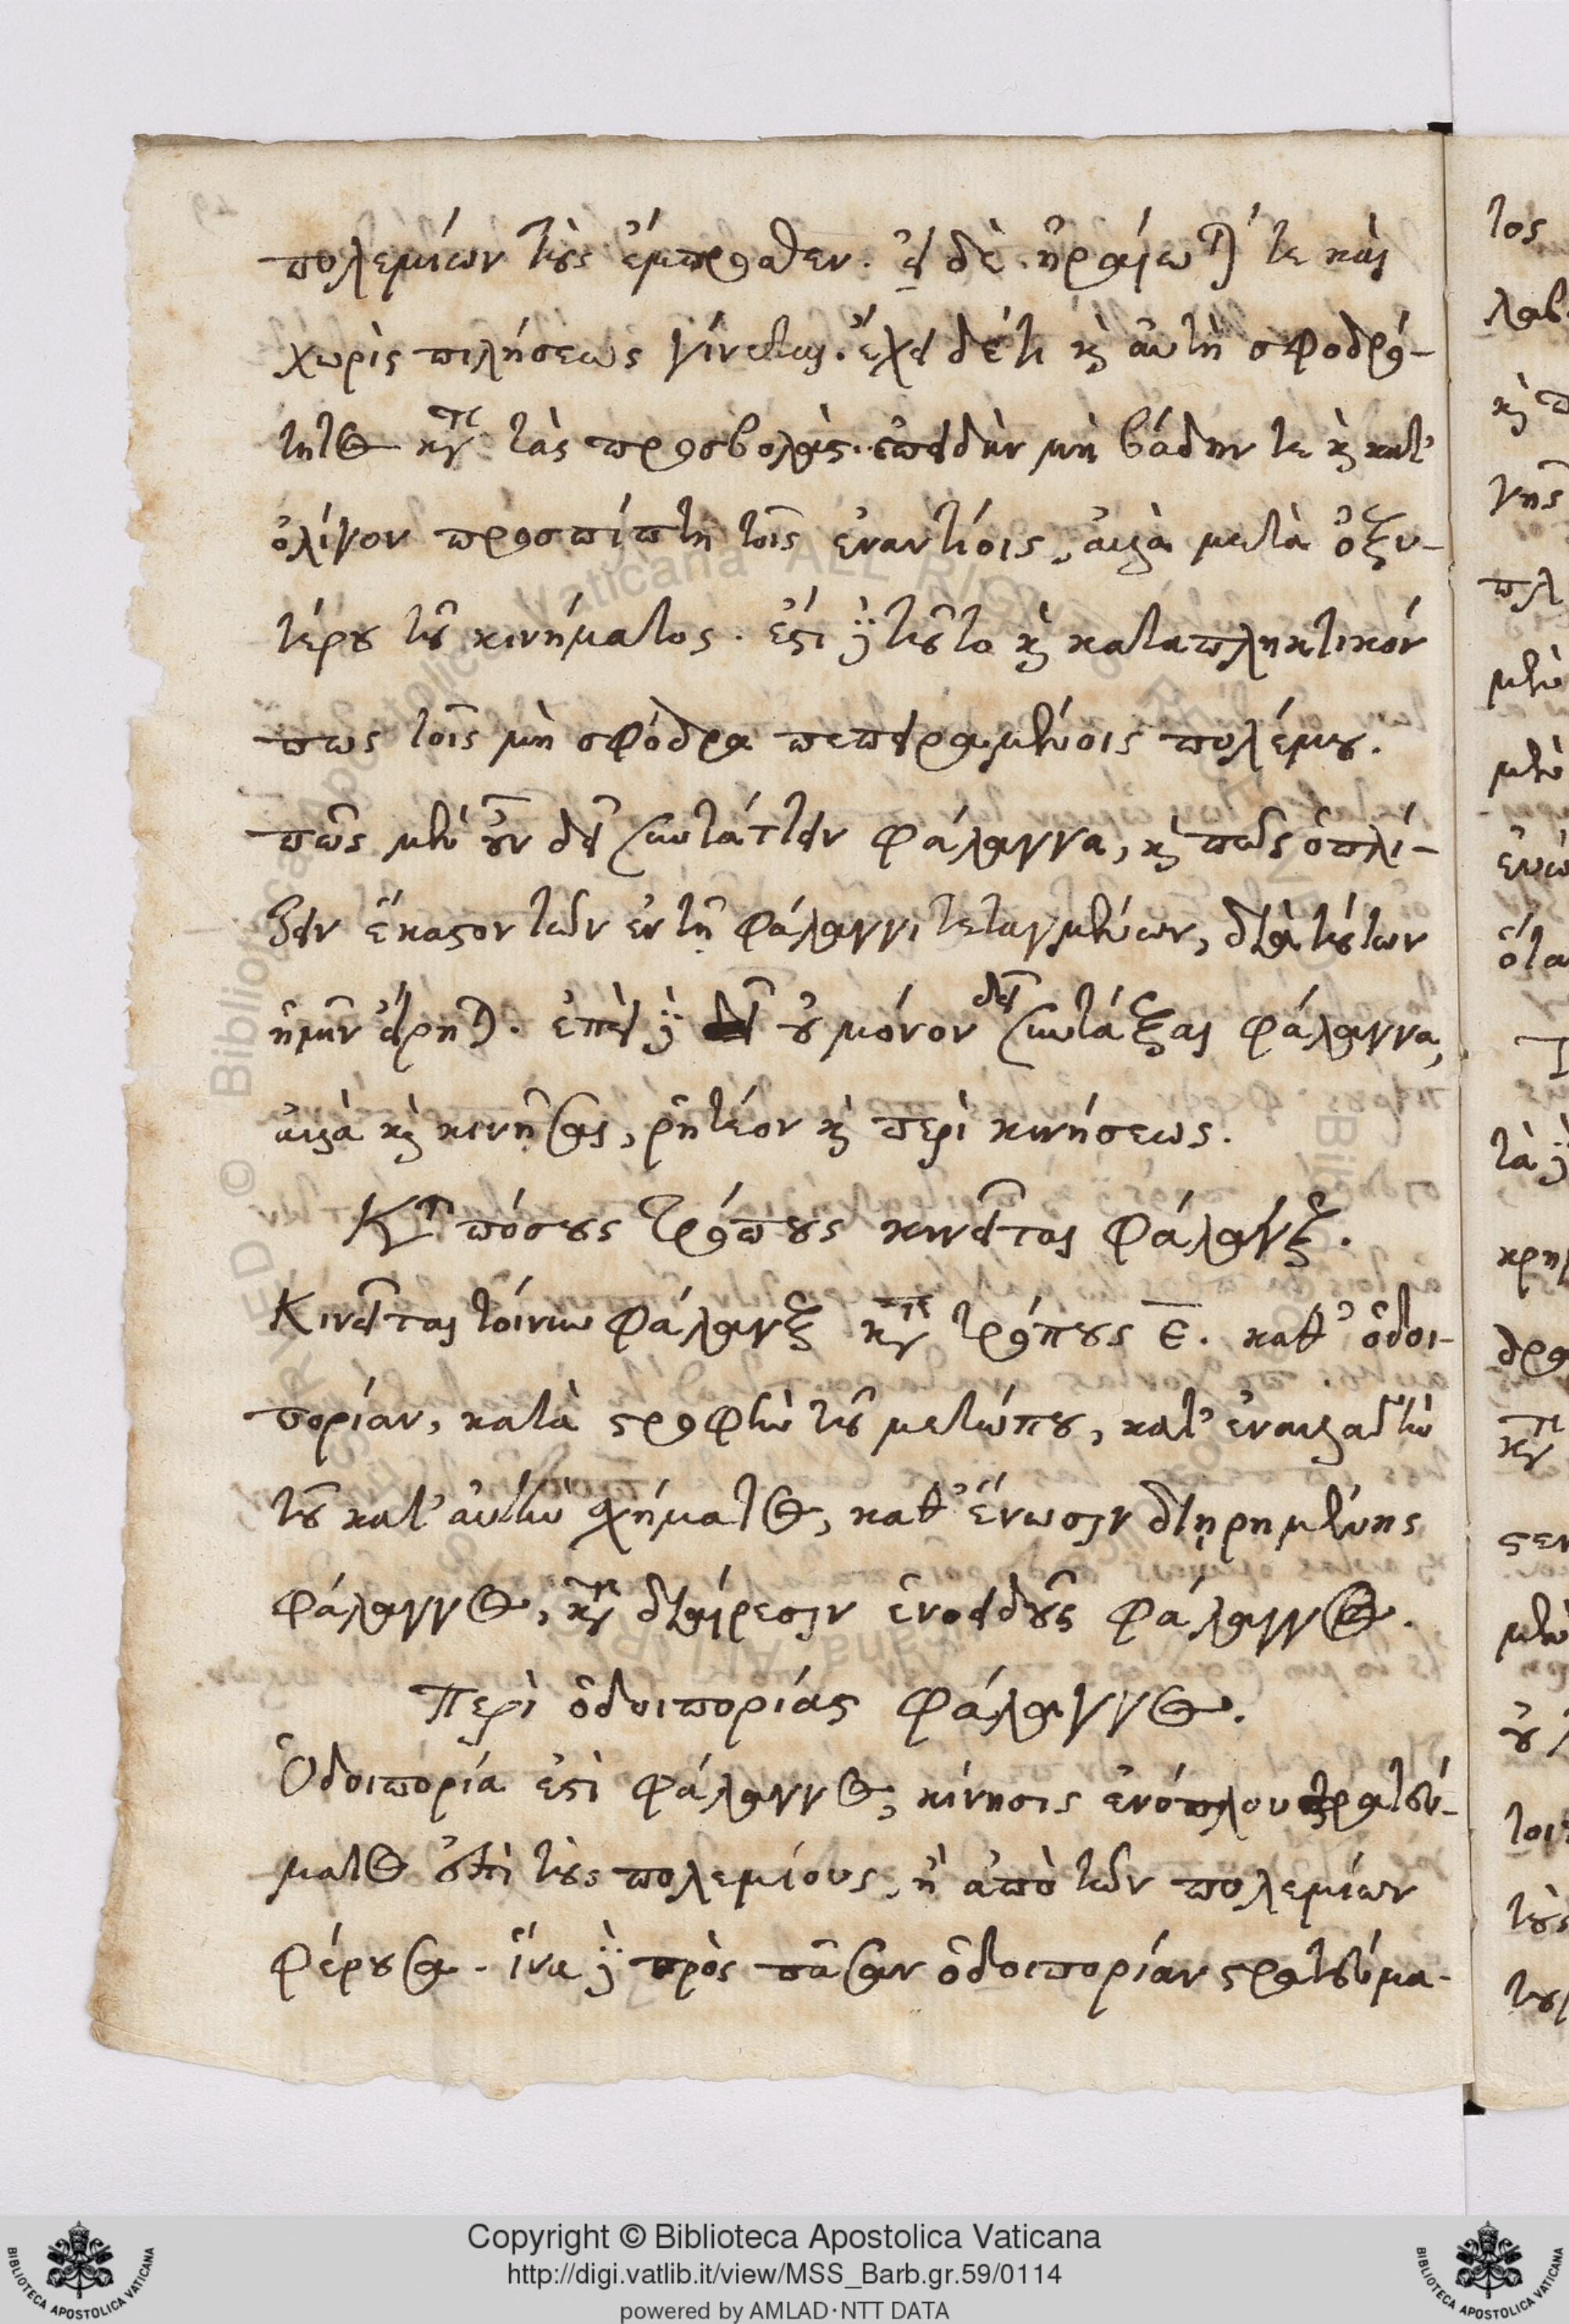 πολεμίων τοὺς ἔμπροσθεν. εἰ δὲ ἠραίωταί τε καὶ
χωρὶς πιλήσεως γίνεται. ἔχει δέ τι καὶ αὐτὴ σφοδρό-
τητος κατὰ τὰς προσβολὰς. ἐπειδὰν μὴ βάδην τε καὶ κατ'
ὀλίγον προσπίπτῃ τοῖς ἐναντίοις, ἀλλὰ μετὰ ὀξυ-
τέρου τοῦ κινήματος. ἔστι γὰρ τοῦτο καὶ καταπληκτικόν
πως τοῖς μὴ σφόδρα πεπειραμένοις πολέμου.
πῶς μὲν οὖν δεῖ συντάττειν φάλαγγα, καὶ πῶς ὁπλί-
ζειν ἕκαστον τῶν ἐν τῇ φάλαγγι τεταγμένων, διὰ τούτων
ἡμῖν εἴρηται. ἐπεὶ γὰρ οὐ μόνον δεῖ συντάξαι φάλαγγα,
ἀλλὰ καὶ κινῆσαι, ῥητέον καὶ περὶ κινήσεως.
Κατὰ πόσους τρόπους κινεῖται φάλαγξ.
Κινεῖται τοίνυν φάλαγξ κατὰ τρόπους ε. καθ' ὁδοι-
πορίαν, κατὰ στροφὴν τοῦ μετώπου, κατ' ἐναλλαγὴν
τοῦ κατ' αὐτὴν σχήματος, καθ' ἕνωσιν διῃρημένης
φάλαγγος, κατὰ διαίρεσιν ἑνοειδοῦς φάλαγγος.
Περὶ ὁδοιπορίας φάλαγγος.
Ὁδοιπορία ἐστὶ φάλαγγος, κίνησις ἐνόπλου στρατεύ-
ματος ἐπὶ τοὺς πολεμίους, ἢ ἀπὸ τῶν πολεμίων
φέρουσα. ἵνα γὰρ πρὸς πᾶσαν ὁδοιπορίαν στρατεύμα-
Copyright © Biblioteca Apostolica Vaticana
http://digi.vatlib.it/view/MSS_Barb.gr.59/0114
powered by AMLAD·NTT DATA